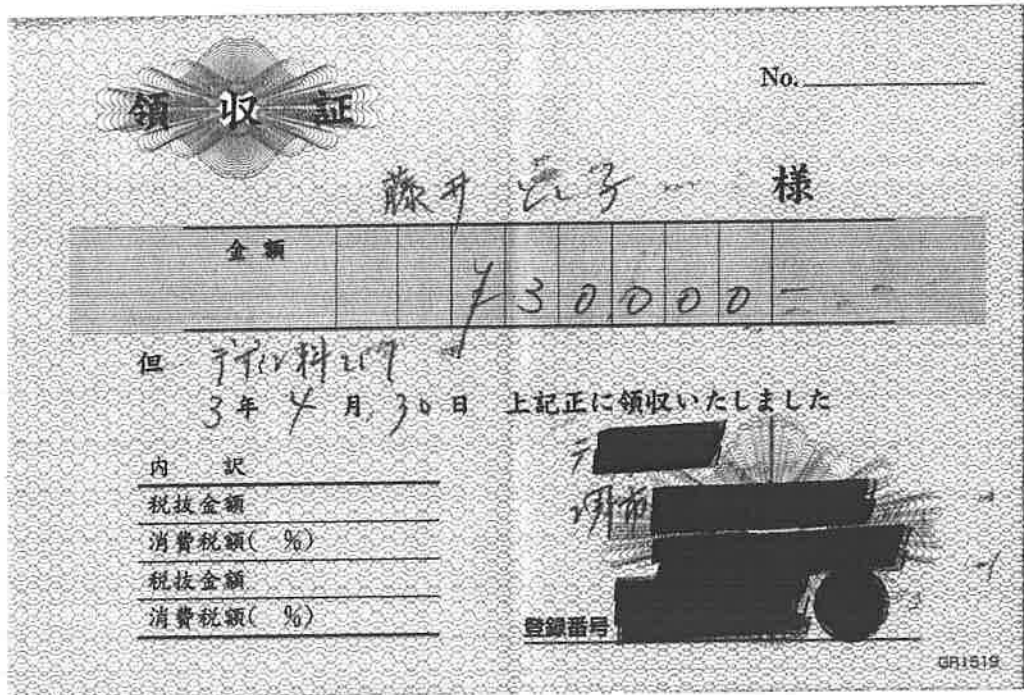 領収証
No.
藤井 子 様
金額 ¥30000-
但 デザイン料として
3年 4月 30日 上記正に領収いたしました
〒
市
内 訳
税抜金額
消費税額( %)
税抜金額
消費税額( %)
登録番号
GR1519